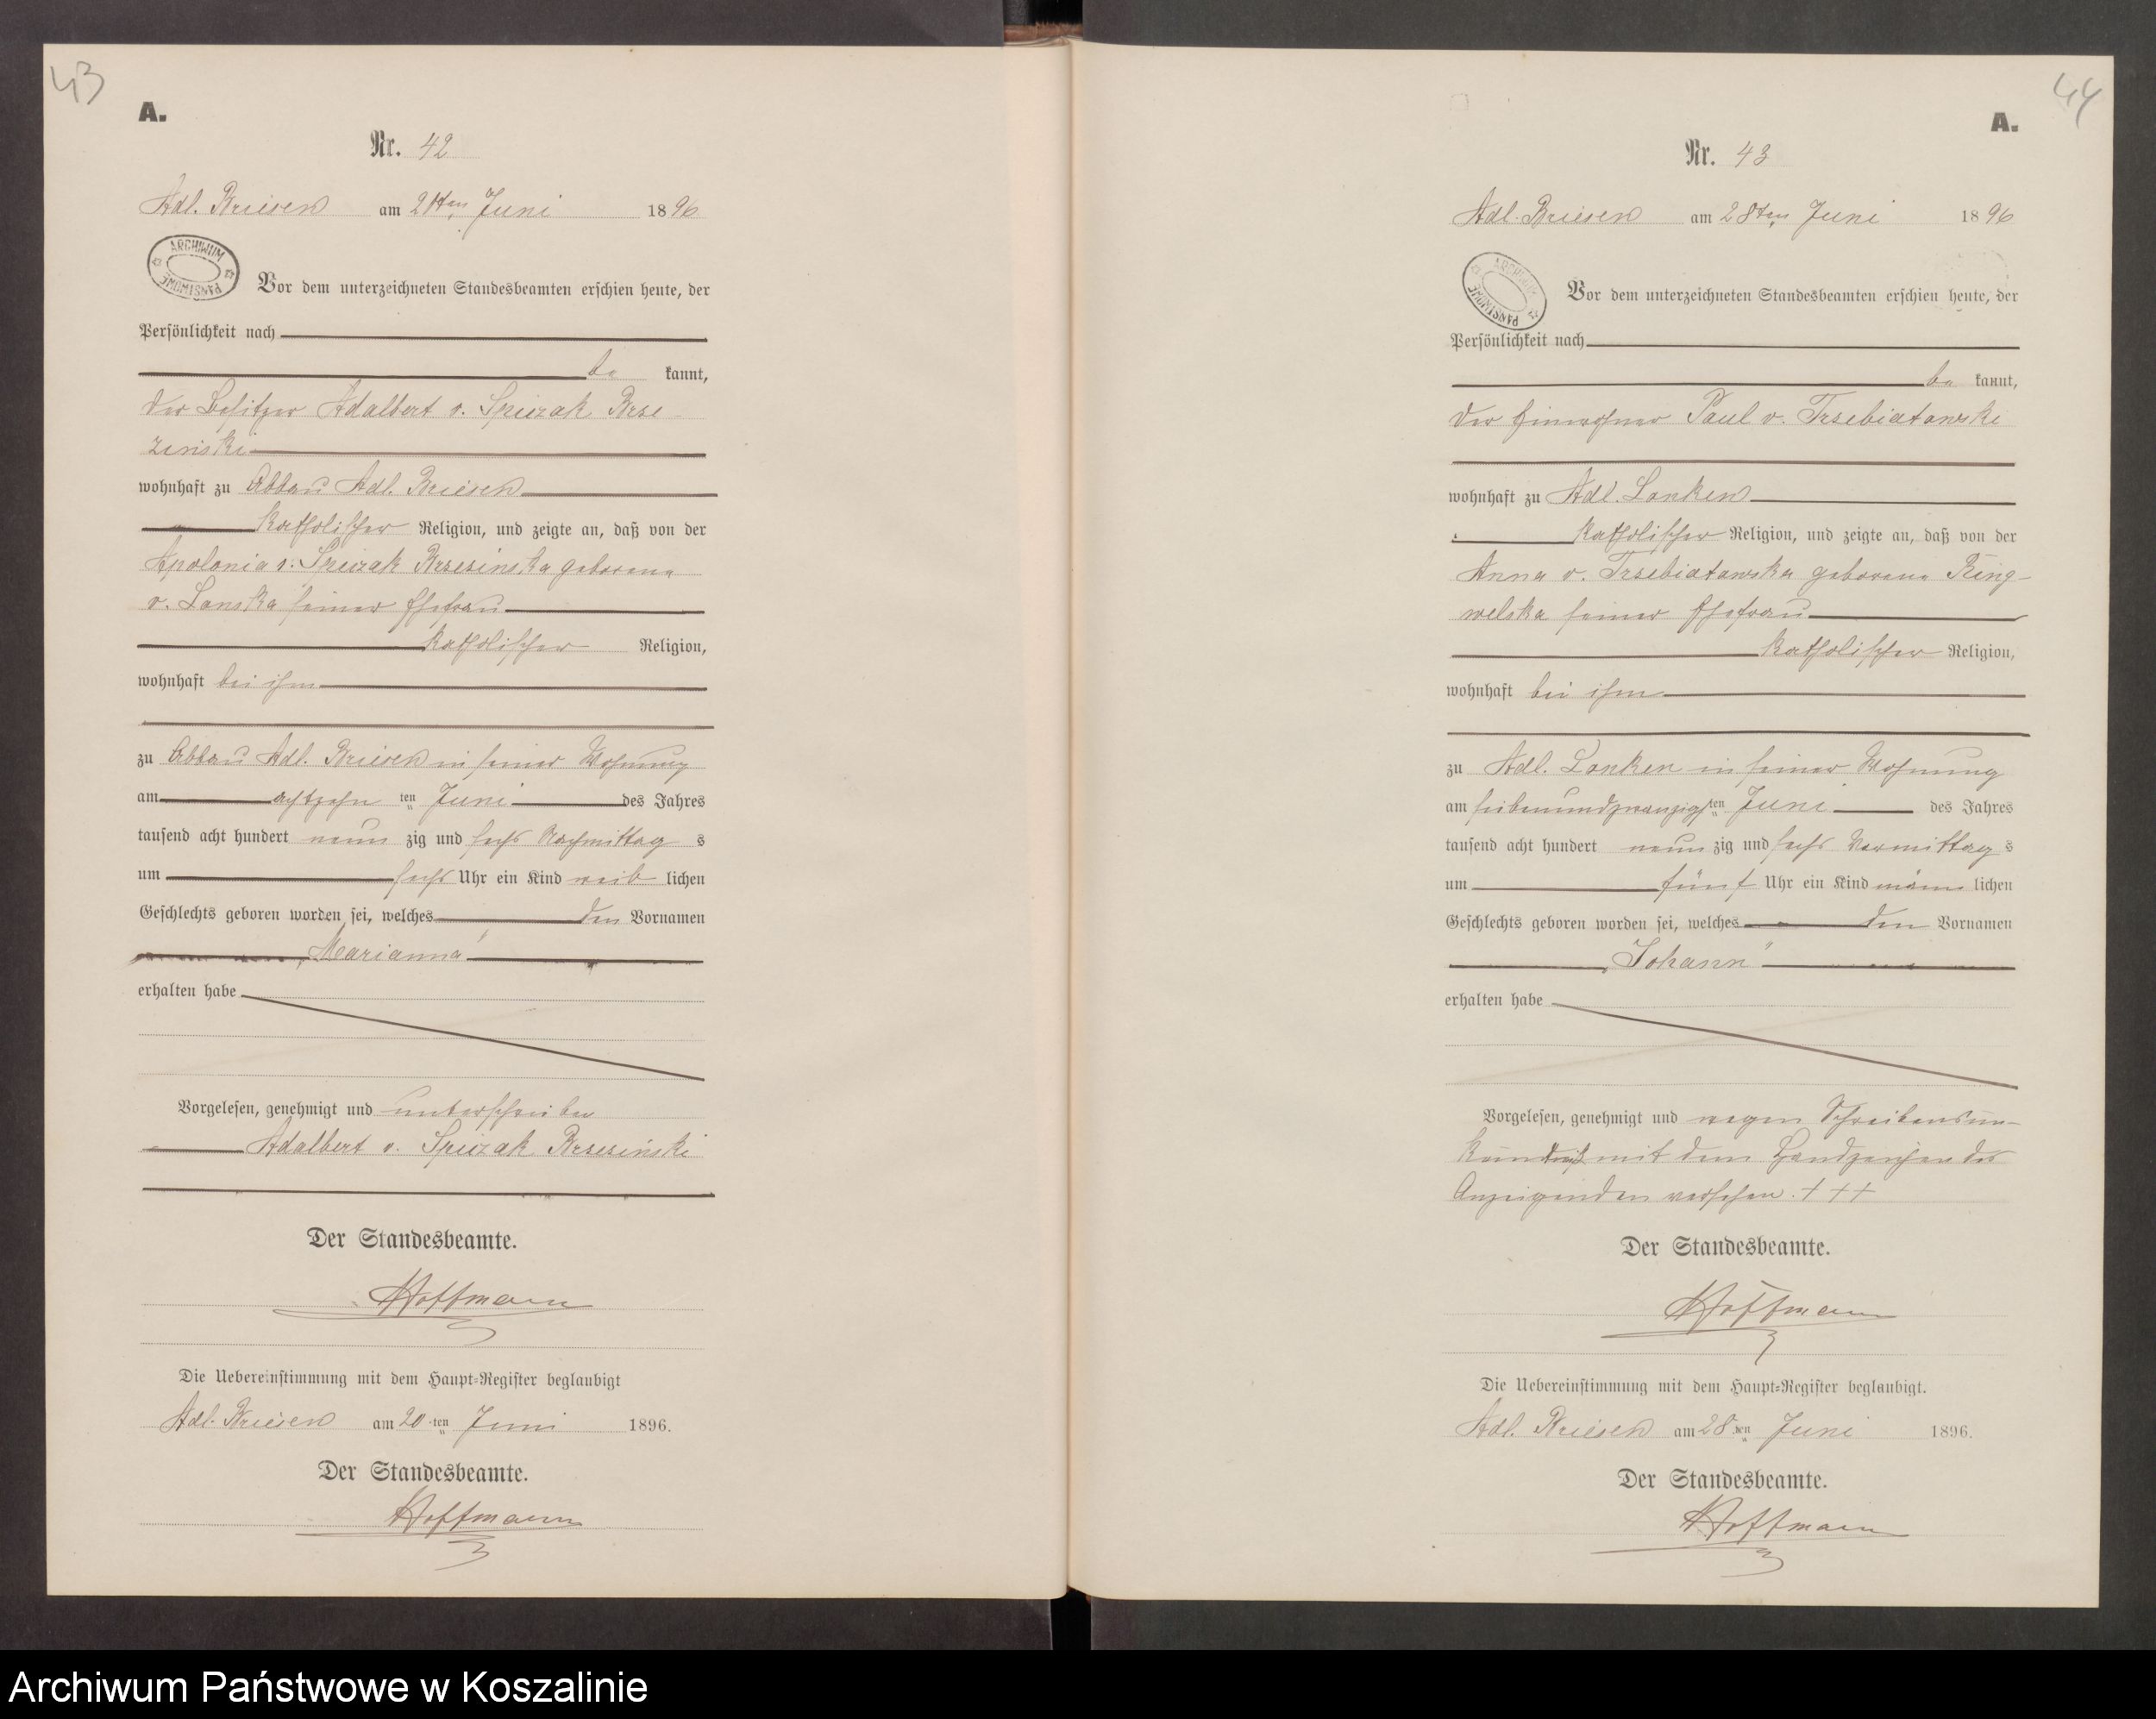 43
A.
Nr. 42
Adl. Briesen am 21ten Juni 1896
ARCHIWUM PAŃSTWOWE
Vor dem unterzeichneten Standesbeamten erschien heute, der
Persönlichkeit nach
be kannt,
der Besitzer Adalbert v. Spiczak Brse-
zinski
wohnhaft zu Abbau Adl. Briesen
katholischer Religion, und zeigte an, daß von der
Apolonia v. Spiczak Brsesinska geborene
v. Lonska seiner Ehefrau
katholischer Religion,
wohnhaft bei ihm
zu Abbau Adl. Briesen in seiner Wohnung
am achtzehn ten Juni des Jahres
tausend acht hundert neun zig und sechs Nachmittag s
um sechs Uhr ein Kind weib lichen
Geschlechts geboren worden sei, welches den Vornamen
„Marianna"
erhalten habe
Vorgelesen, genehmigt und unterschrieben
Adalbert v. Spiczak Brsesinski
Der Standesbeamte.
Hoffmann
Die Uebereinstimmung mit dem Haupt-Register beglaubigt
Adl. Briesen am 20 ten Juni 1896.
Der Standesbeamte.
Hoffmann
44
A.
Nr. 43
Adl. Briesen am 28ten Juni 1896
ARCHIWUM PAŃSTWOWE
Vor dem unterzeichneten Standesbeamten erschien heute, der
Persönlichkeit nach
be kannt,
der Einwohner Paul v. Trsebiatowski
wohnhaft zu Adl. Lonken
katholischer Religion, und zeigte an, daß von der
Anna v. Trsebiatowska geborene Ring-
welska seiner Ehefrau
katholischer Religion,
wohnhaft bei ihm
zu Adl. Lonken in seiner Wohnung
am siebenundzwanzigs ten Juni des Jahres
tausend acht hundert neun zig und sechs Vormittag s
um fünf Uhr ein Kind männ lichen
Geschlechts geboren worden sei, welches den Vornamen
„Johann"
erhalten habe
Vorgelesen, genehmigt und wegen Schreibensun-
kundniß mit dem Handzeichen des
Anzeigenden versehen. + + +
Der Standesbeamte.
Hoffmann
Die Uebereinstimmung mit dem Haupt-Register beglaubigt.
Adl. Briesen am 28 ten Juni 1896.
Der Standesbeamte.
Hoffmann
Archiwum Państwowe w Koszalinie